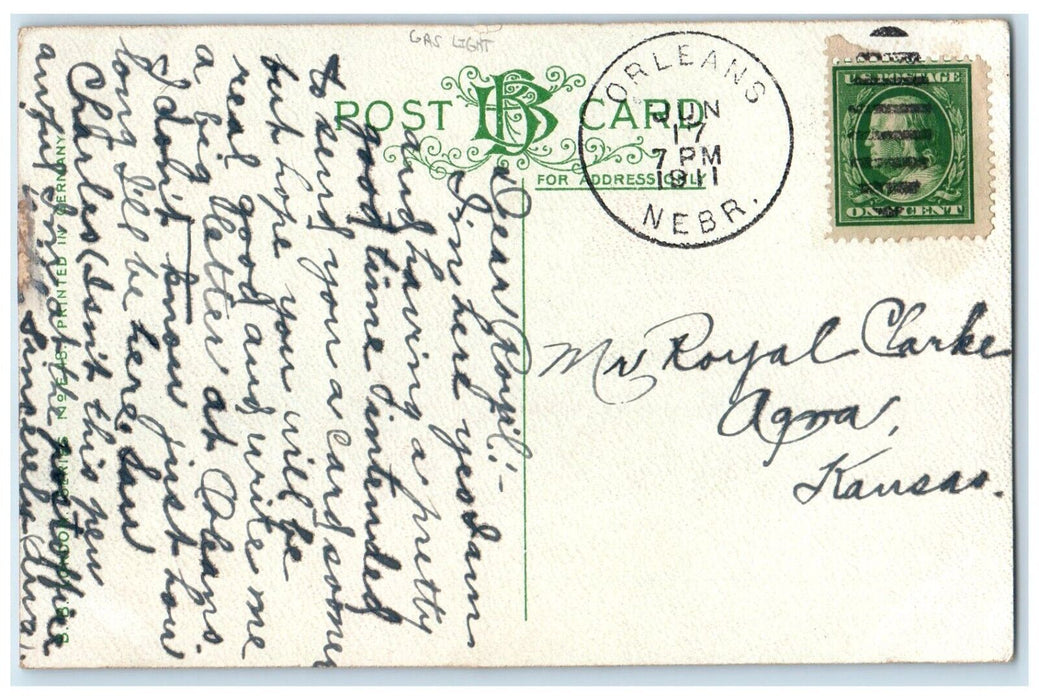 GAS LIGHT
POST CARD
FOR ADDRESS ONLY
ORLEANS
JUN
17
7 PM
1911
NEBR.
U.S. POSTAGE
ONE CENT
Mr Royal Clarke
Agra,
Kansas.
Dear Royil:-
I'm here yes I am
and having a pretty
good time. I intended
to send you a card sooner
but hope you will be
real good and write me
a big letter at Orleans.
I don't know just how
long I'll be here. Saw
Charles (Isn't this pen
awful) in at the postoffice
PRINTED IN GERMANY